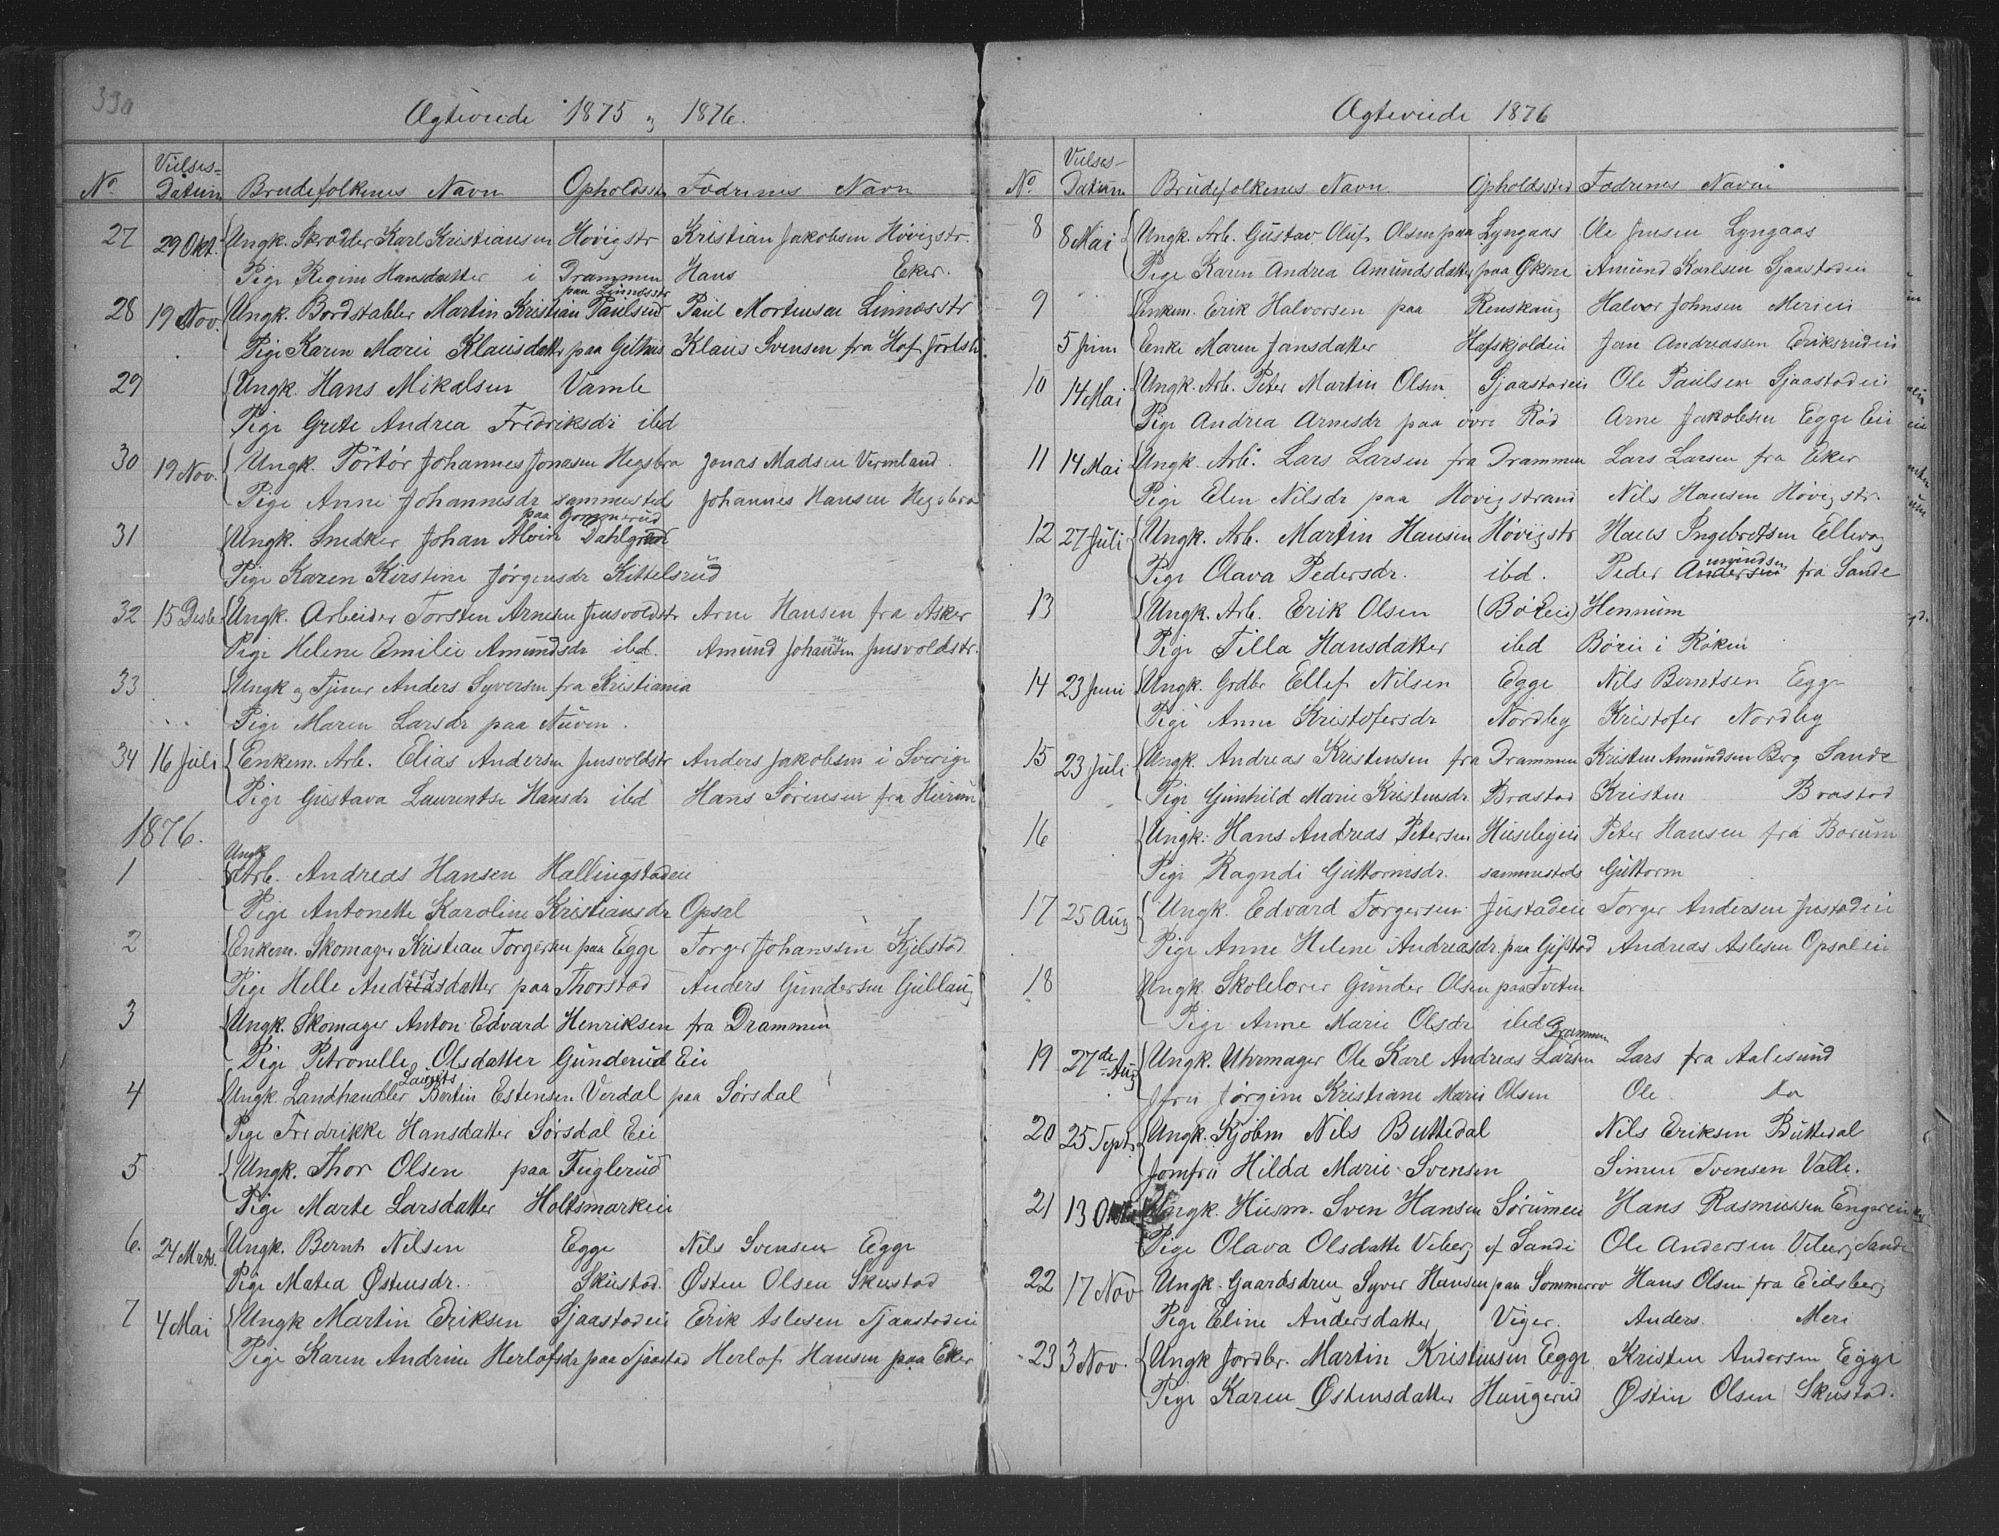 330
Ægteviede 1875 og 1876.
No. Vielses-Datum Brudefolkenes Navn Opholdssted Fædrenes Navn
27 29 Okt. Ungk. Skrædder Karl Kristiansen Høvigstr Kristian Jakobsen Høvigstr.
Pige Regine Hansdatter i Drammen Hans Eker.
paa Linnæsstr
28 19 Nov. Ungk. Bordstabler Martin Kristian Paulsen Paul Mortensen Linnæsstr
Pige Karen Marie Klausdatter paa Gilhus Klaus Svensen fra Hof Jarlsb.
29 Ungk. Hans Mikalsen Vamle
Pige Grete Andrea Fredriksdr ibd
30 19 Nov. Ungk. Johannes Jonasen Hegsbro Jonas Madsen Vermland.
Pige Anne Johannesdr sammested Johannes Hansen Hegsbro
paa Gommerud
31 Ungk. Snedker Johan Alvin Dahlgren
Pige Karen Kirstine Jørgensdr Kittelsrud
32 15 Desbr Ungk. Arbeider Torsten Arnesen Jusvoldstr Arne Hansen fra Asker
Pige Helene Emilie Amundsdr ibd. Amund Johansen Jusvoldstr.
33 Ungk og Tjener Anders Syversen fra Kristiania
Pige Maren Larsdr paa Nuven.
34 16 Juli Enkem. Arb. Elias Andersen Jusvoldstr Anders Jakobsen i Sverige
Pige Gustava Laurentse Hansdr ibd Hans Sørensen fra Hurum
1876.
Ungk
1 Arb. Andreas Hansen Hallingstadeie
Pige Antonette Karoline Kristiansdr Opsal
2 Enkem. Skomager Kristian Torgersen paa Egge Torger Johanssen Kjelstad
Pige Helle Andreasdatter paa Thorstad Anders Gundersen Gullaug
3 Ungk. Skomager Anton Edvard Henriksen fra Drammen
Pige Petronelle Olsdatter Gunderud Eie
Laurits
4 Ungk. Landhandler Bertin Estensen Verdal paa Sørsdal
Pige Fredrikke Hansdatter Sørsdal Eie
5 Ungk. Thor Olsen paa Fuglerud
Pige Marte Larsdatter Holtsmarkeie
6. 24 Mrts. Ungk. Bernt Nilsen Egge Nils Svensen Egge
Pige Matea Østensdr. Skustad. Østen Olsen Skustad
7 4 Mai Ungk Martin Eriksen Sjaastadeie Erik Aslesen Sjaastadeie
Pige Karen Andrine Herlofsdr paa Sjaastad Herlof Hansen paa Eker
Ægteviede 1876
No. Vielses-Datum Brudefolkenes Navn Opholdssted Fædrenes Navn
8 8 Mai Ungk. Arb. Gustav Oluf Olsen paa Lyngaas Ole Jensen Lyngaas
Pige Karen Andrea Amundsdatter paa Øksne Amund Karlsen Sjaastadeie
9 Enkem. Erik Halvorsen paa Renskaug Halvor Johnsen Merieie
5 Juni Enke Maren Jansdatter Hafskjoldeie Jan Andreassen Eriksrudeie
10 14 Mai Ungk. Arb. Peter Martin Olsen Sjaastadeie Ole Paulsen Sjaastadeie
Pige Andrea Arnesdr paa øvre Rød Arne Jakobsen Egge Eie
11 14 Mai Ungk. Arb. Lars Larsen fra Drammen Lars Larsen fra Eker
Pige Elen Nilsdr paa Høvigstrand Nils Hansen Høvigstr.
12 27 Juli Ungk. Arb. Martin Hansen Høvigstr Hans Ingebretsen
Pige Olava Pedersdr. ibd. Peder Andersen fra Sande
mundsen
13 Ungk. Arb. Erik Olsen (Bøeie) Hennum
Pige Tilla Hansdatter ibd Børie i Røken
14 23 Juni Ungk. Grdbr Ellef Nilsen Egge Nils Berntsen Egge
Pige Anne Kristofersdr Nordby Kristofer Nordby
15 23 Juli Ungk. Andreas Kristensen fra Drammen Kristen Amundsen Berg Sande
Pige Gunhild Marie Kristensdr Brastad Kristen Brastad
16 Ungk. Hans Andreas Petersen Husebyeie Peter Hansen fra Borum
Pige Ragndi Guttormsdr. sammestads Guttorm
17 25 Aug Ungk. Edvard Torgersen Justadeie Torger Andersen Justadeie
Pige Anne Helene Andreasdr paa Gifstad Andreas Aslesen Opsaleie
18 Ungk Skolelærer Gunder Olsen paa Tveten
Pige Anne Marie Olsdr ibd
Drammen
19 27de Aug Ungk. Uhrmager Ole Karl Andreas Larsen Lars fra Aalesund
Jfru Jørgine Kristiane Marie Olsen Ole do
20 25 Sept. Ungk. Kjøbm Nils Buttedal Nils Eriksen Buttedal
Jomfru Hilda Marie Svensen Simen Svensen Valle.
21 13 Oktb Ungk. Husm. Sven Hansen Sørumeie Hans Rasmussen
Pige Olava Olsdatter Veberg af Sande Ole Andersen Veberg Sande
22 17 Nov Ungk. Gaardsdreng Syver Hansen paa Sommerro Hans Olsen fra Eidsberg
Pige Eline Andersdatter Viger. Anders Meri
23 3 Nov. Ungk Jordbr. Martin Kristensen Egge Kristen Andersen Egge
Pige Karen Østensdatter Haugerud Østen Olsen Skustad.